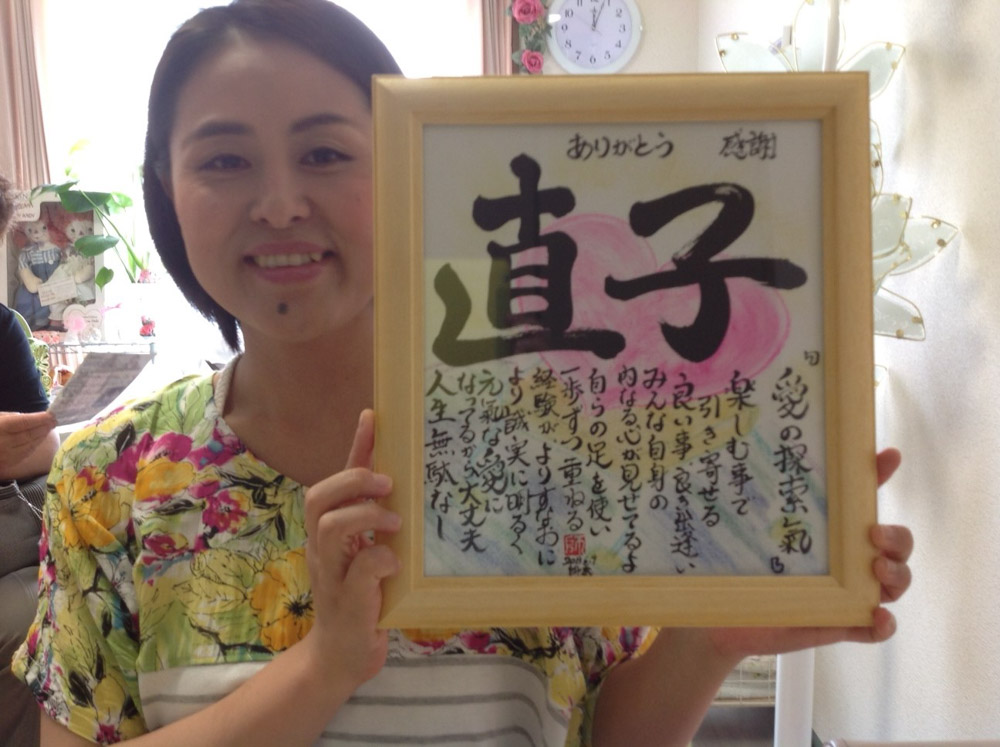 ありがとう　感謝
直子
「愛の探索氣」
楽しむ事で
引き寄せる
良い事良き出逢い
みんな自身の
内なる心が見せてるよ
自らの足を使い
一歩ずつ重ねる
経験が、よりすなおに
より誠実に明るく
元氣な愛に
なってるから大丈夫
人生無駄なし